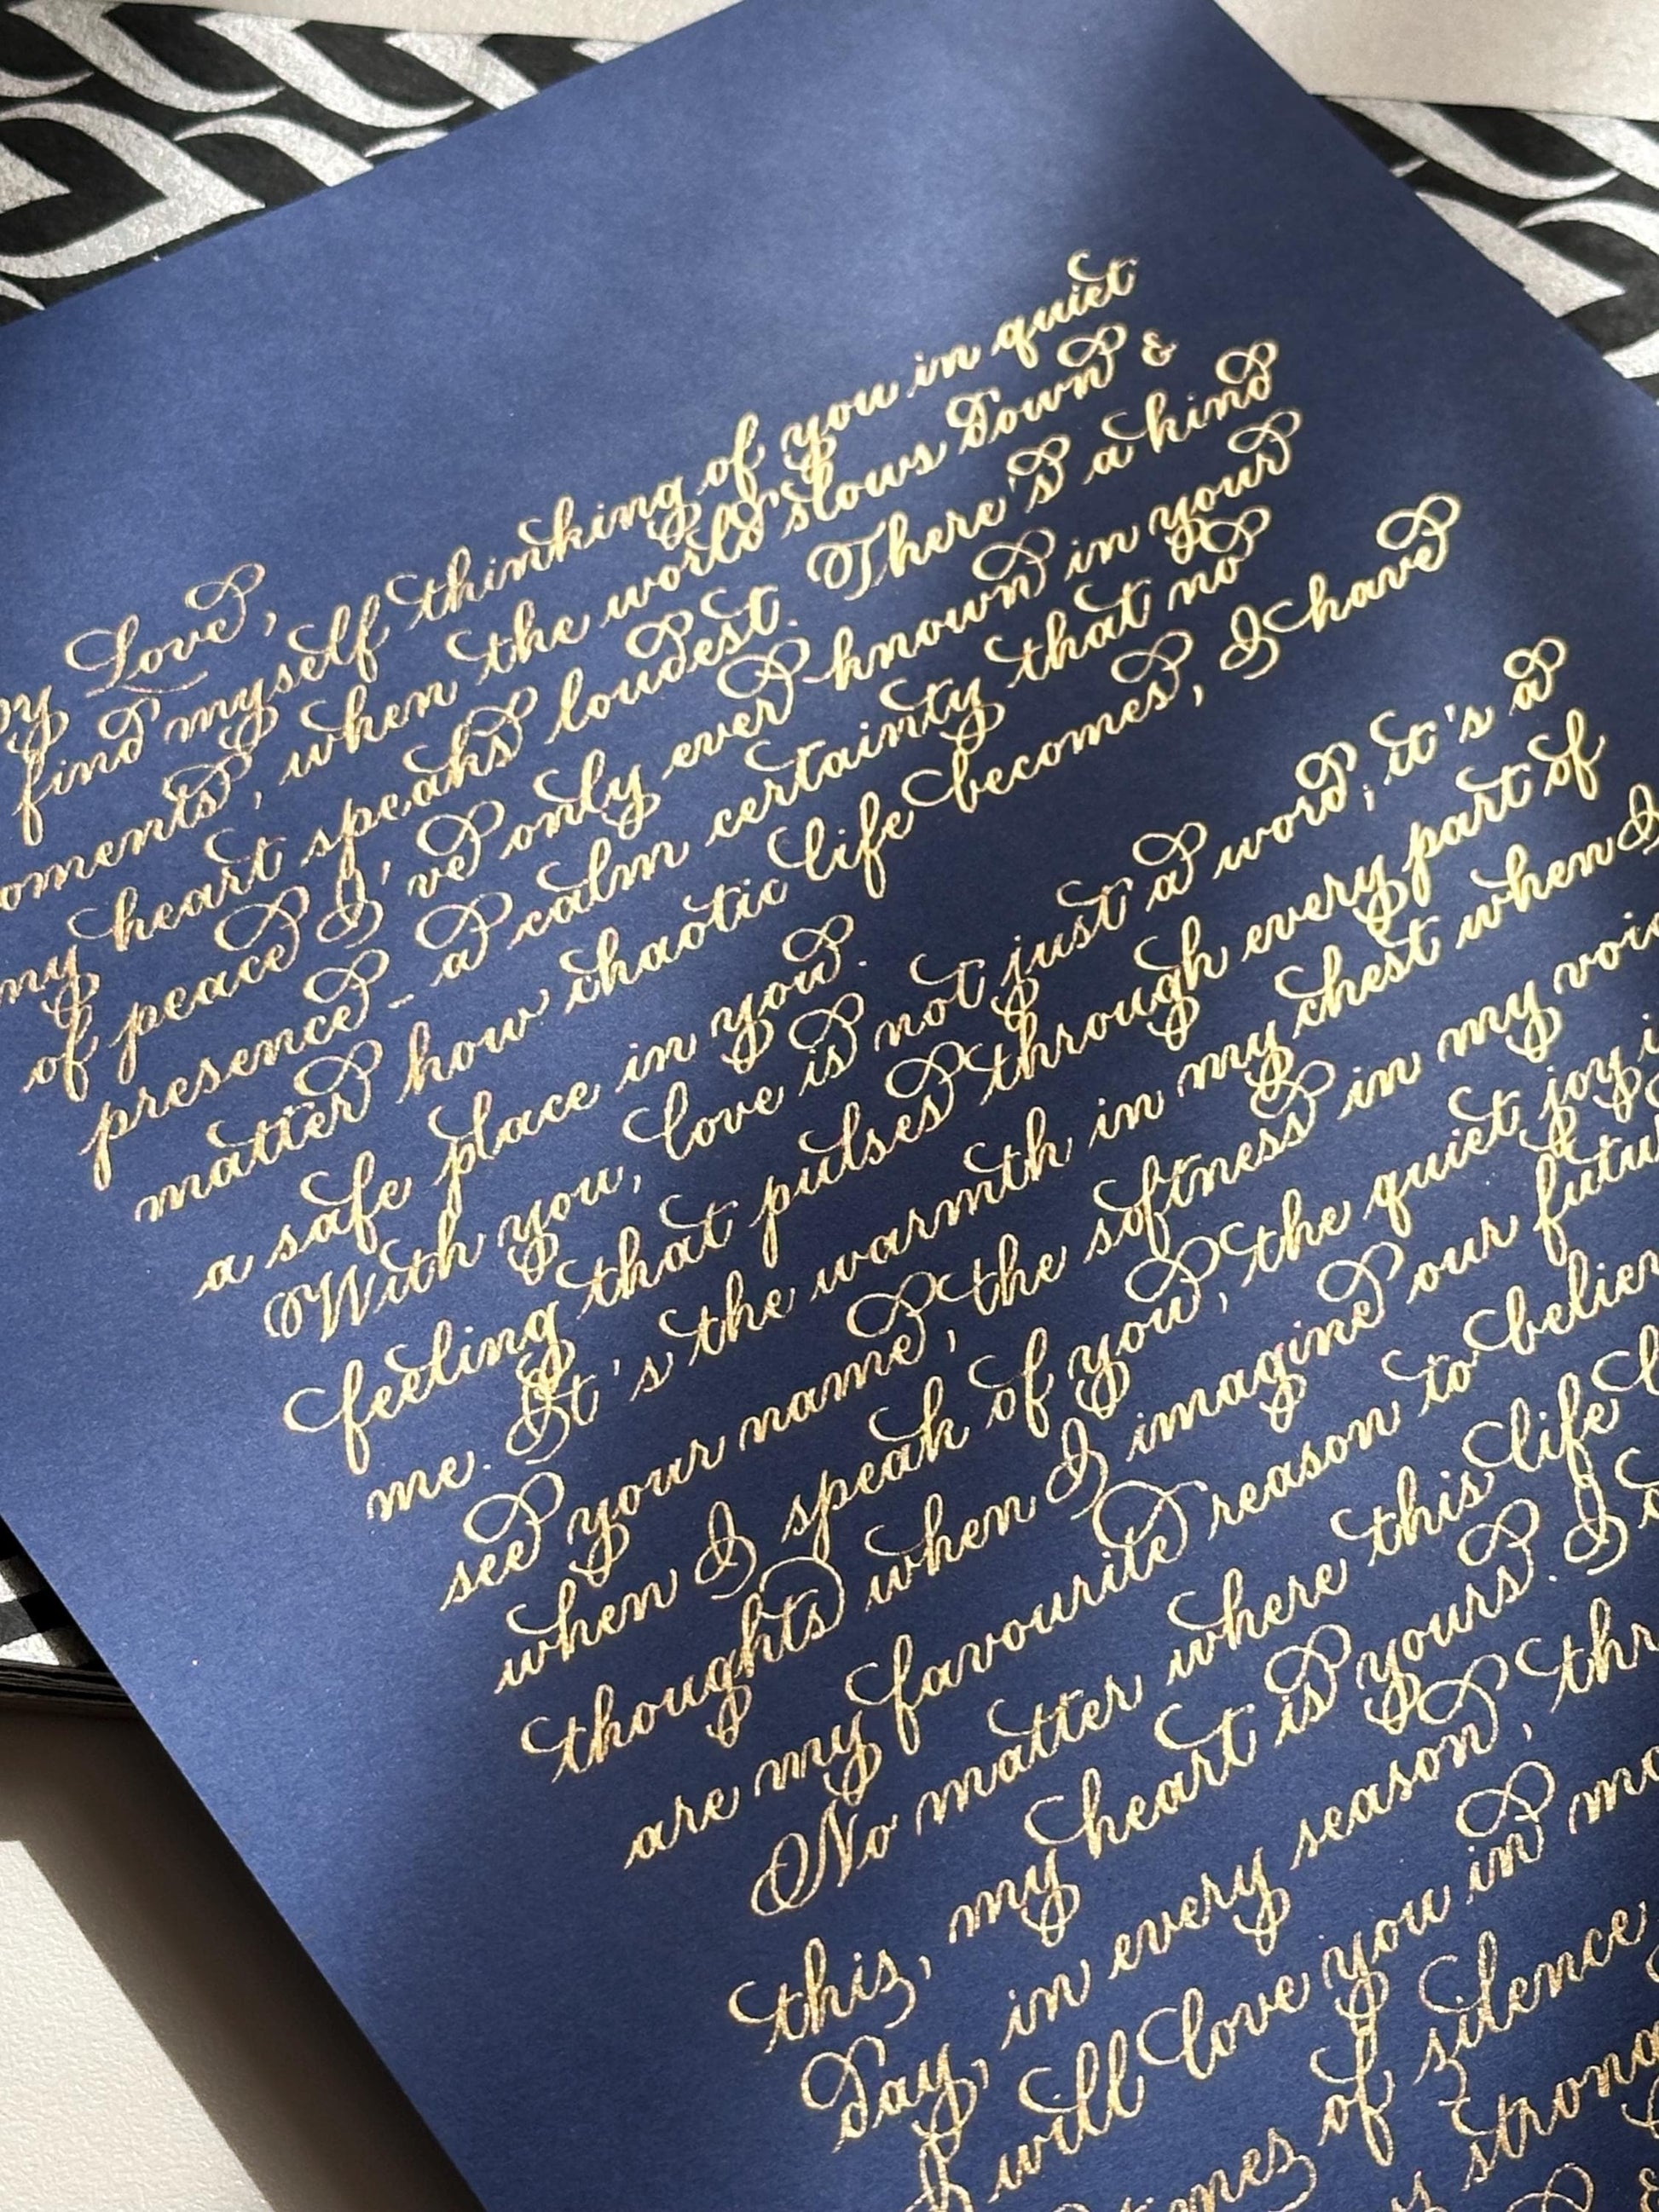 My Love,
find myself thinking of you in quiet
moments, when the world slows down &
my heart speaks loudest. There's a kind
of peace I've only ever known in your
presence -- a calm certainty that no
matter how chaotic life becomes, I have
a safe place in you.
With you, love is not just a word; it's a
feeling that pulses through every part of
me. It's the warmth in my chest when I
see your name, the softness in my voice
when I speak of you, the quiet joy i
thoughts when I imagine our futu
are my favourite reason to believ
No matter where this life
this, my heart is yours. I
day, in every season, thr
I will love you in mo
times of silence
strong